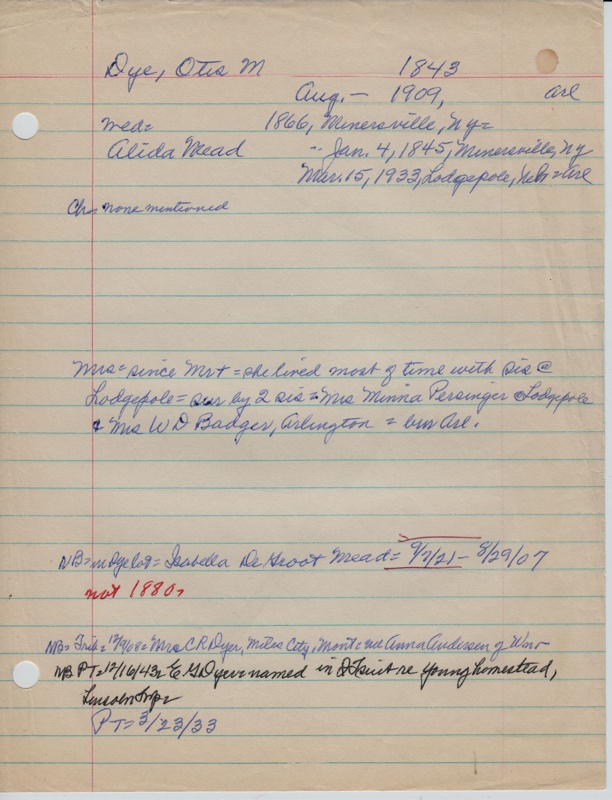 Dye, Otis M 1843
Aug. — 1909, arl
wed= 1866, Minersville, Ny=
Alida Mead Jan. 4, 1845, Minersville, Ny
Mar. 15, 1933, Lodgepole, Neb = Arl
Ch= none mentioned
Mrs = since Mr + = she lived most of time with sis @
Lodgepole = sur by 2 sis = Mrs Minna Persinger @ Lodgepole
& Mrs W D Badger, Arlington = bur Arl.
NB= in Dye lot = Isabella De Groot Mead = 9/7/21 — 8/29/07
not 1880.
NB= Trib = 12/9/08 = Mrs C R Dyer, Miles City, Mont = nee Anna Andersen of
NB PT= 12/16/43= E G Dyer = named in re Young homestead,
Lincoln twp=
PT= 3/23/33